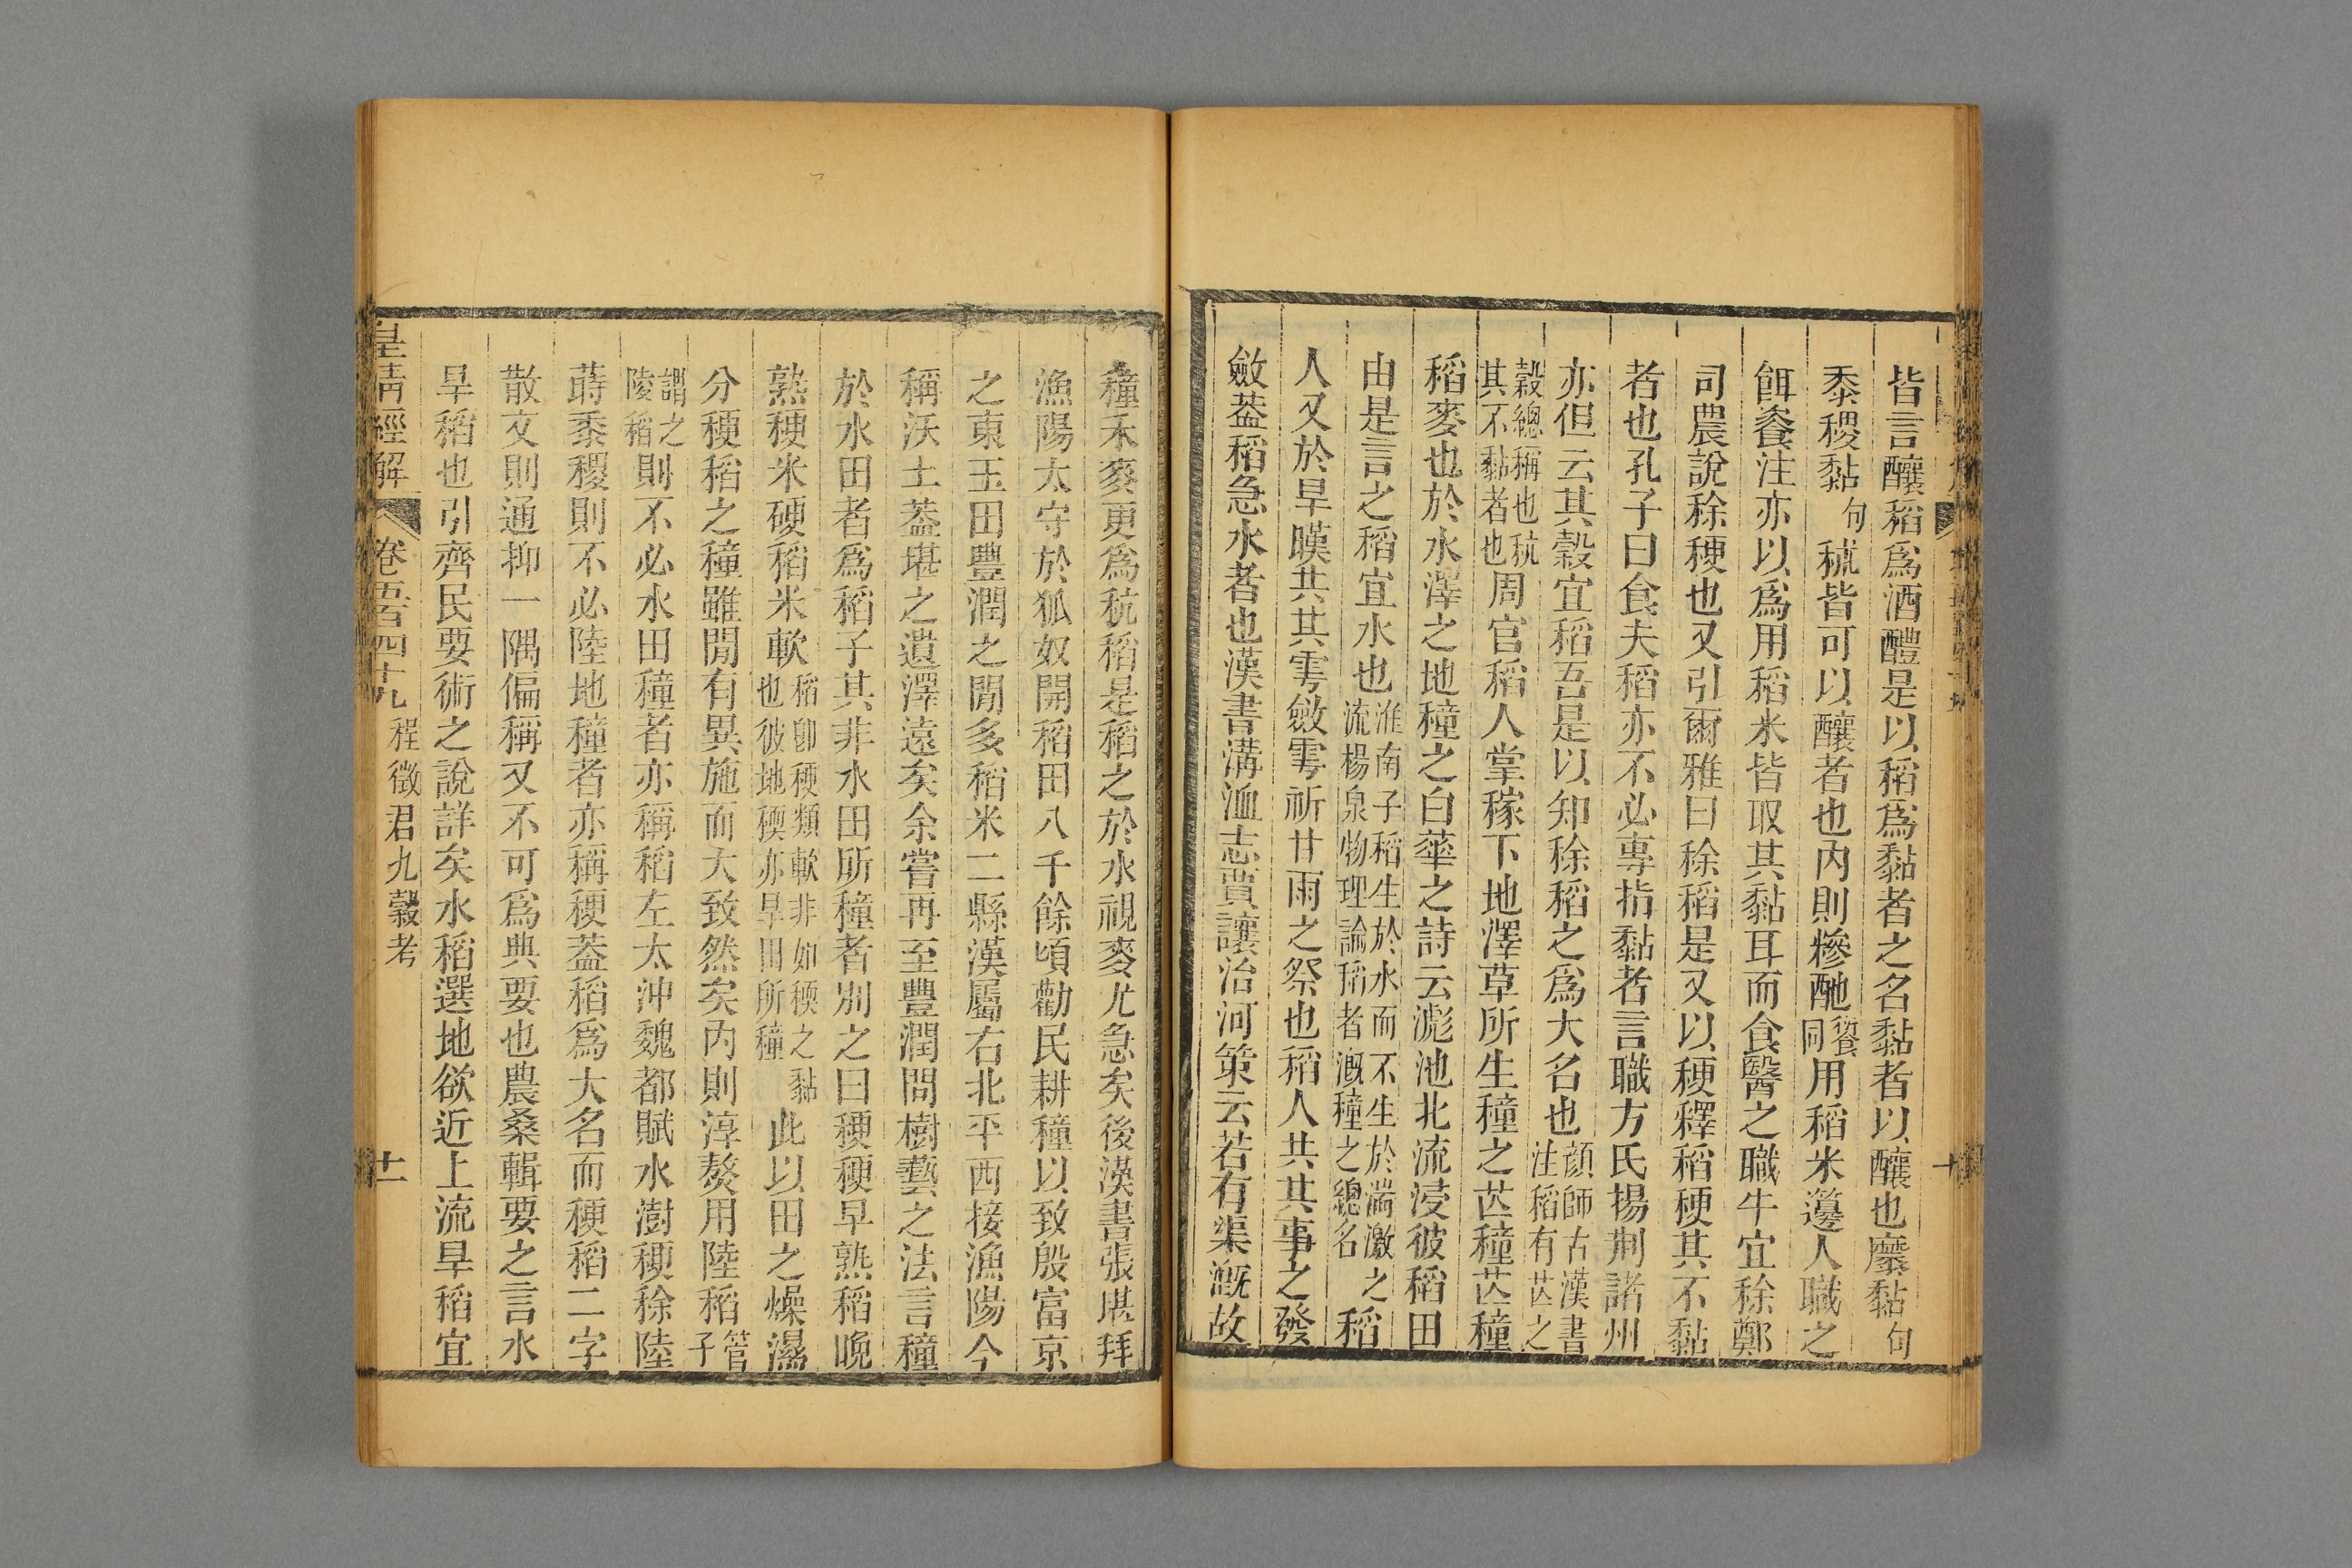 皆言釀稻爲酒醴是以稻爲黏者之名黏者以釀也穈黏句
黍稷黏句秫皆可以釀者也內則糝酏餈同用稻米籩人職之
餌餈注亦以爲用稻米皆取其黏耳而食醫之職牛宜稌鄭
司農說稌稉也又引爾雅曰稌稻是又以稉釋稻稉其不黏
者也孔子曰食夫稻亦不必專指黏者言職方氏揚荆諸州
亦但云其穀宜稻吾是以知稌稻之爲大名也顔師古漢書注稻有芒之
穀總稱也秔其不黏者也周官稻人掌稼下地澤草所生穜之芒穜芒穜
稻麥也於水澤之地穜之白華之詩云滮池北流浸彼稻田
由是言之稻宜水也淮南子稻生於水而不生於湍瀨之流楊泉物理論稻者漑穜之總名稻
人又於旱暵共其雩斂雩祈甘雨之祭也稻人共其事之發
斂葢稻急水者也漢書溝洫志賈讓治河策云若有渠漑故
穜禾麥更爲秔稻是稻之於水視麥尤急矣後漢書張堪拜
漁陽太守於狐奴開稻田八千餘頃勸民耕穜以致殷富京
之東玉田豐潤之閒多稻米二縣漢屬右北平西接漁陽今
稱沃土葢堪之遺澤遠矣余嘗再至豐潤問樹藝之法言穜
於水田者爲稻子其非水田所穜者別之曰稉稉早熟稻晚
熟稉米硬稻米軟稻卽稉類軟非如稬之黏也彼地稬亦旱田所穜此以田之燥濕
分稉稻之穜雖閒有異施而大致然矣內則淳熬用陸稻管子
謂之陵稻則不必水田穜者亦稱稻左太沖魏都賦水澍稉稌陸
蒔黍稷則不必陸地穜者亦稱稉葢稻爲大名而稉稻二字
散文則通抑一隅偏稱又不可爲典要也農桑輯要之言水
旱稻也引齊民要術之說詳矣水稻選地欲近上流旱稻宜
皇清經解 卷五百四十九 程徵君九穀考 十一